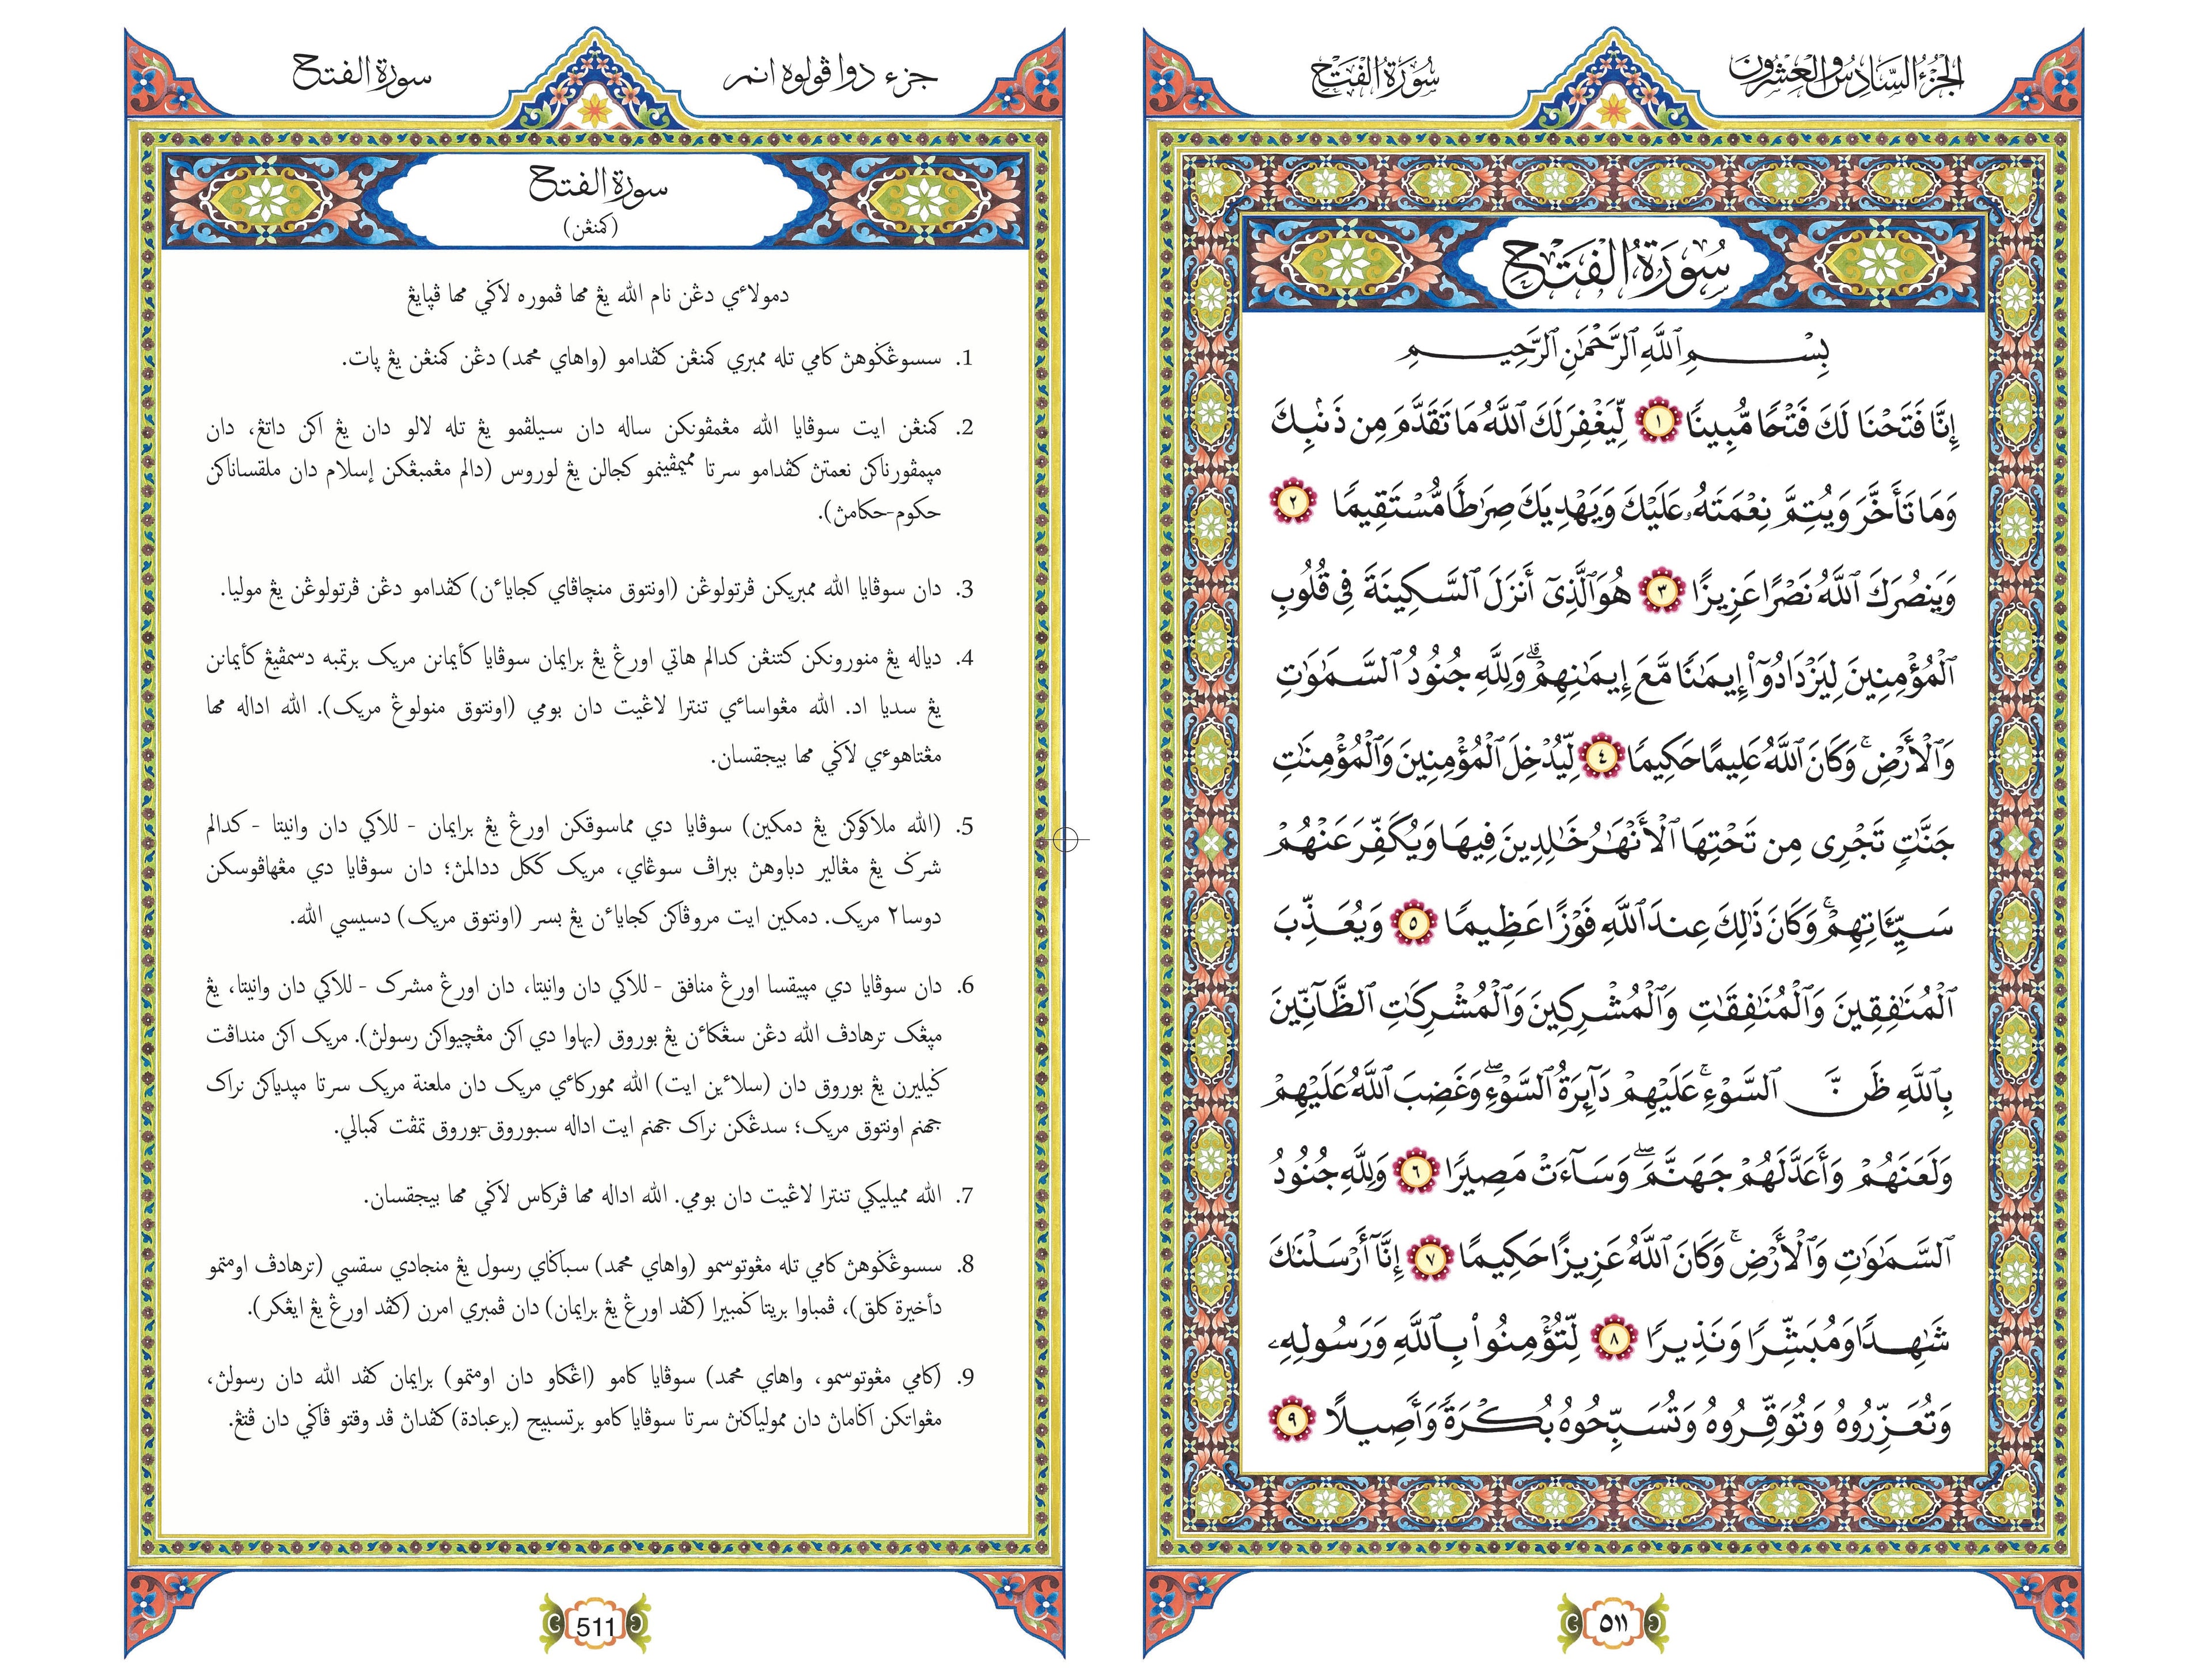 الجزء السادس والعشرون
سورة الفتح
سُورَةُ الفَتْحِ
بِسْمِ ٱللَّهِ ٱلرَّحْمَٰنِ ٱلرَّحِيمِ
إِنَّا فَتَحْنَا لَكَ فَتْحًا مُّبِينًا ١ لِّيَغْفِرَ لَكَ ٱللَّهُ مَا تَقَدَّمَ مِن ذَنۢبِكَ
وَمَا تَأَخَّرَ وَيُتِمَّ نِعْمَتَهُۥ عَلَيْكَ وَيَهْدِيَكَ صِرَٰطًا مُّسْتَقِيمًا ٢
وَيَنصُرَكَ ٱللَّهُ نَصْرًا عَزِيزًا ٣ هُوَ ٱلَّذِىٓ أَنزَلَ ٱلسَّكِينَةَ فِى قُلُوبِ
ٱلْمُؤْمِنِينَ لِيَزْدَادُوٓا۟ إِيمَٰنًا مَّعَ إِيمَٰنِهِمْ ۗ وَلِلَّهِ جُنُودُ ٱلسَّمَٰوَٰتِ
وَٱلْأَرْضِ ۚ وَكَانَ ٱللَّهُ عَلِيمًا حَكِيمًا ٤ لِّيُدْخِلَ ٱلْمُؤْمِنِينَ وَٱلْمُؤْمِنَٰتِ
جَنَّٰتٍ تَجْرِى مِن تَحْتِهَا ٱلْأَنْهَٰرُ خَٰلِدِينَ فِيهَا وَيُكَفِّرَ عَنْهُمْ
سَيِّـَٔاتِهِمْ ۚ وَكَانَ ذَٰلِكَ عِندَ ٱللَّهِ فَوْزًا عَظِيمًا ٥ وَيُعَذِّبَ
ٱلْمُنَٰفِقِينَ وَٱلْمُنَٰفِقَٰتِ وَٱلْمُشْرِكِينَ وَٱلْمُشْرِكَٰتِ ٱلظَّآنِّينَ
بِٱللَّهِ ظَنَّ ٱلسَّوْءِ ۚ عَلَيْهِمْ دَآئِرَةُ ٱلسَّوْءِ ۖ وَغَضِبَ ٱللَّهُ عَلَيْهِمْ
وَلَعَنَهُمْ وَأَعَدَّ لَهُمْ جَهَنَّمَ ۖ وَسَآءَتْ مَصِيرًا ٦ وَلِلَّهِ جُنُودُ
ٱلسَّمَٰوَٰتِ وَٱلْأَرْضِ ۚ وَكَانَ ٱللَّهُ عَزِيزًا حَكِيمًا ٧ إِنَّآ أَرْسَلْنَٰكَ
شَٰهِدًا وَمُبَشِّرًا وَنَذِيرًا ٨ لِّتُؤْمِنُوا۟ بِٱللَّهِ وَرَسُولِهِۦ
وَتُعَزِّرُوهُ وَتُوَقِّرُوهُ وَتُسَبِّحُوهُ بُكْرَةً وَأَصِيلًا ٩
٥١١
جزء دوا ڤولوه انم
سورة الفتح
سورة الفتح
(کمنڠن)
دمولاءي دڠن نام الله يڠ مها ڤموره لاݢي مها ڤڽايڠ
1. سسوڠݢوهڽ کامي تله ممبري کمنڠن کڤدامو (واهاي محمد) دڠن کمنڠن يڠ ڽات.
2. کمنڠن ايت سوڤايا الله مڠمڤونکن ساله دان سيلڤمو يڠ تله لالو دان يڠ اکن داتڠ، دان
مڽمڤورناکن نعمتڽ کڤدامو سرتا مميمڤينمو کجالن يڠ لوروس (دالم مڠمبڠکن إسلام دان ملقساناکن
حکوم-حکامڽ).
3. دان سوڤايا الله ممبريکن ڤرتولوڠن (اونتوق منچاڤاي کجاياءن) کڤدامو دڠن ڤرتولوڠن يڠ موليا.
4. دياله يڠ منورونکن کتنڠن کدالم هاتي اورڠ يڠ برايمان سوڤايا کأيمانن مريک برتمبه دسمڤيڠ کأيمانن
يڠ سديا اد. الله مڠواساءي تنترا لاڠيت دان بومي (اونتوق منولوڠ مريک). الله اداله مها
مڠتاهوءي لاݢي مها بيجقسان.
5. (الله ملاکوکن يڠ دمکين) سوڤايا دي مماسوقکن اورڠ يڠ برايمان - للاکي دان وانيتا - کدالم
شرݢ يڠ مڠالير دباوهڽ ببراڤ سوڠاي، مريک ککل ددالمڽ؛ دان سوڤايا دي مڠهاڤوسکن
دوسا٢ مريک. دمکين ايت مروڤاکن کجاياءن يڠ بسر (اونتوق مريک) دسيسي الله.
6. دان سوڤايا دي مڽيقسا اورڠ منافق - للاکي دان وانيتا، دان اورڠ مشرک - للاکي دان وانيتا، يڠ
مڽڠک ترهادڤ الله دڠن سڠکاءن يڠ بوروق (بهاوا دي اکن مڠچيواکن رسولڽ). مريک اکن منداڤت
ݢيليرن يڠ بوروق دان (سلاءين ايت) الله ممورکاءي مريک دان ملعنة مريک سرتا مڽدياکن نراک
جهنم اونتوق مريک؛ سدڠکن نراک جهنم ايت اداله سبوروق-بوروق تمڤت کمبالي.
7. الله مميليکي تنترا لاڠيت دان بومي. الله اداله مها ڤرکاس لاݢي مها بيجقسان.
8. سسوڠݢوهڽ کامي تله مڠوتوسمو (واهاي محمد) سباݢاي رسول يڠ منجادي سقسي (ترهادڤ اومتمو
دأخيرة کلق)، ڤمباوا بريتا ݢمبيرا (کڤد اورڠ يڠ برايمان) دان ڤمبري امرن (کڤد اورڠ يڠ ايڠکر).
9. (کامي مڠوتوسمو، واهاي محمد) سوڤايا کامو (اڠکاو دان اومتمو) برايمان کڤد الله دان رسولڽ،
مڠواتکن اݢاماڽ دان ممولياکنڽ سرتا سوڤايا کامو برتسبيح (برعبادة) کڤداڽ ڤد وقتو ڤاݢي دان ڤتڠ.
511